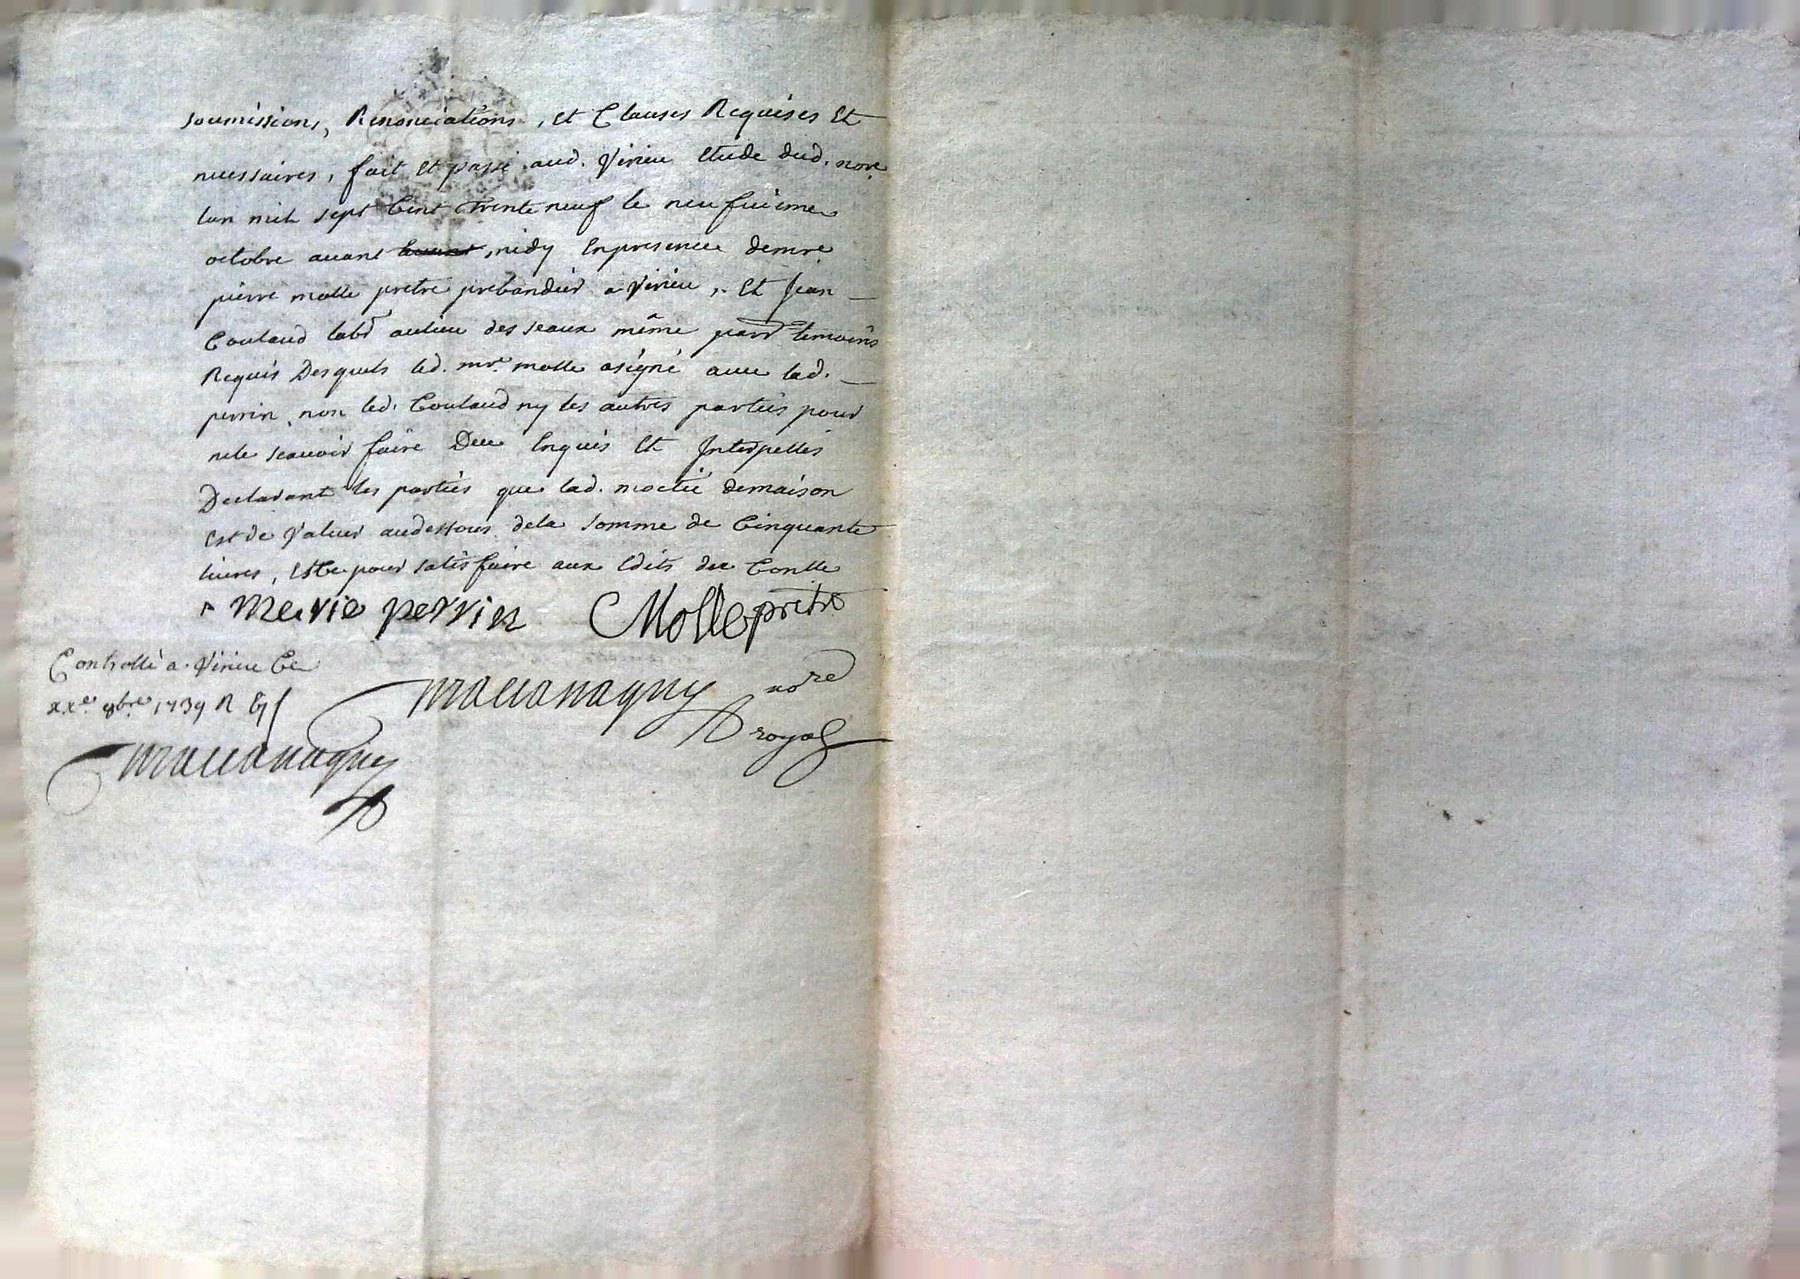 soumissions, Renonciations, et Clauses Requises Et
necessaires, fait et passé aud. Virieu etude dud. nore
lan mil sept Cent trente neuf le neufuieme
octobre auant midy Enpresence demre
pierre molle pretre prebandier a Virieu, Et Jean
Coulaud labr aulieu des seaux même parr temoins
Requis Desquels led. mre molle asigné auec lad.
perrin, non led. Coulaud ny les autres parties pour
nele scauoir faire Deu Enquis Et Interpellés
Declarant les parties que lad. moctié demaison
est de Valeur audessous dela somme de Cinquante
liures, Et ce pour satisfaire aux Edits du Conlle
marie perrin Molle pretre
Controllé a Virieu Ce
xxe 8bre 1739 R
nore
royal